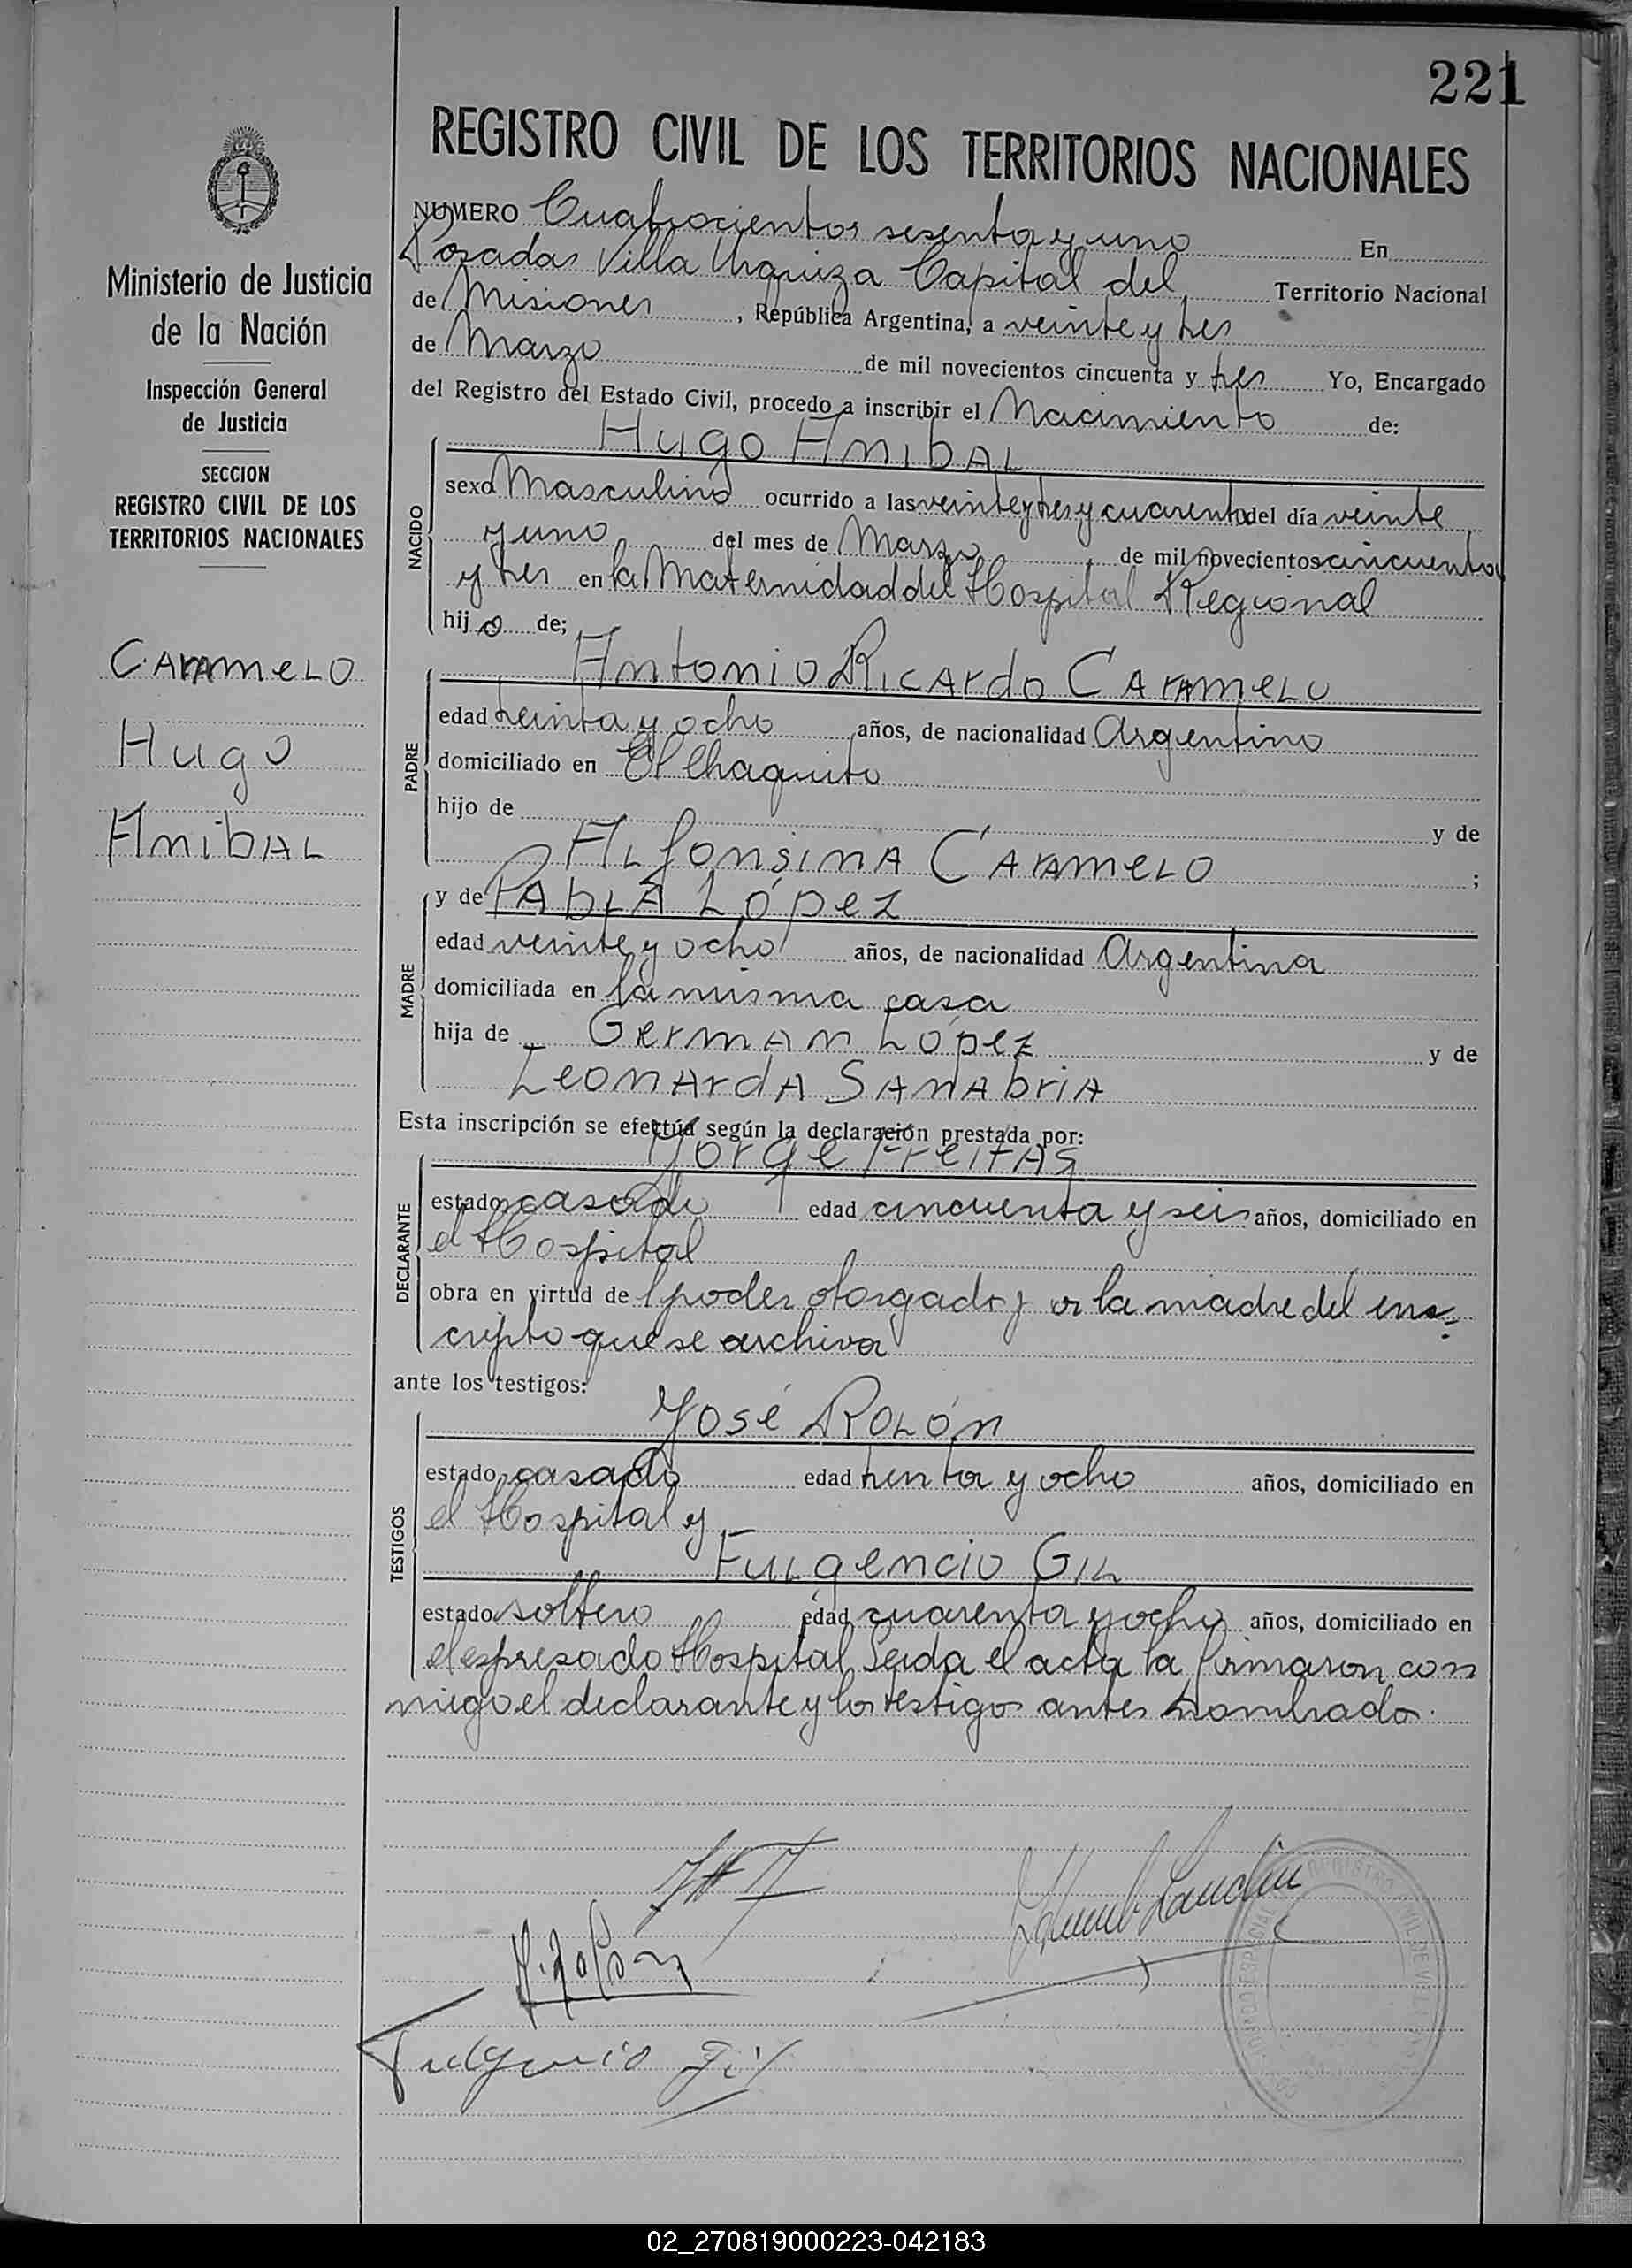 221
REGISTRO CIVIL DE LOS TERRITORIOS NACIONALES
Ministerio de Justicia
de la Nación
Inspección General
de Justicia
SECCION
REGISTRO CIVIL DE LOS
TERRITORIOS NACIONALES
CARAMELO
Hugo
ANIBAL
NUMERO Cuatrocientos sesenta y uno En
Posadas Villa Urquiza Capital del Territorio Nacional
de Misiones, República Argentina, a veinte y tres
de Marzo de mil novecientos cincuenta y tres Yo, Encargado
del Registro del Estado Civil, procedo a inscribir el Nacimiento de:
Hugo ANIBAL
NACIDO
sexo Masculino ocurrido a las veinte y tres y cuarenta del día veinte
y uno del mes de Marzo de mil novecientos cincuenta
y tres en la Maternidad del Hospital Regional
hijo de;
ANTONIO RICARDO CARAMELO
PADRE
edad treinta y ocho años, de nacionalidad Argentino
domiciliado en El Chaquito
hijo de y de
ALFONSINA CARAMELO ;
y de PABLA LÓPEZ
MADRE
edad veinte y ocho años, de nacionalidad Argentina
domiciliada en la misma casa
hija de GERMAN LÓPEZ y de
LEONARDA SANABRIA
Esta inscripción se efectúa según la declaración prestada por:
JORGE FREITAS
DECLARANTE
estado casado edad cincuenta y seis años, domiciliado en
el Hospital
obra en virtud del poder otorgado por la madre del ins-
cripto que se archiva
ante los testigos:
JOSÉ ROLÓN
TESTIGOS
estado casado edad trenta y ocho años, domiciliado en
el Hospital y
FULGENCIO GIL
estado soltero edad cuarenta y ocho años, domiciliado en
el espresado Hospital Leida el acta la firmaron con
migo el declarante y los testigos antes nombrado.
J. Rolon
Fulgencio Gil
02_270819000223-042183